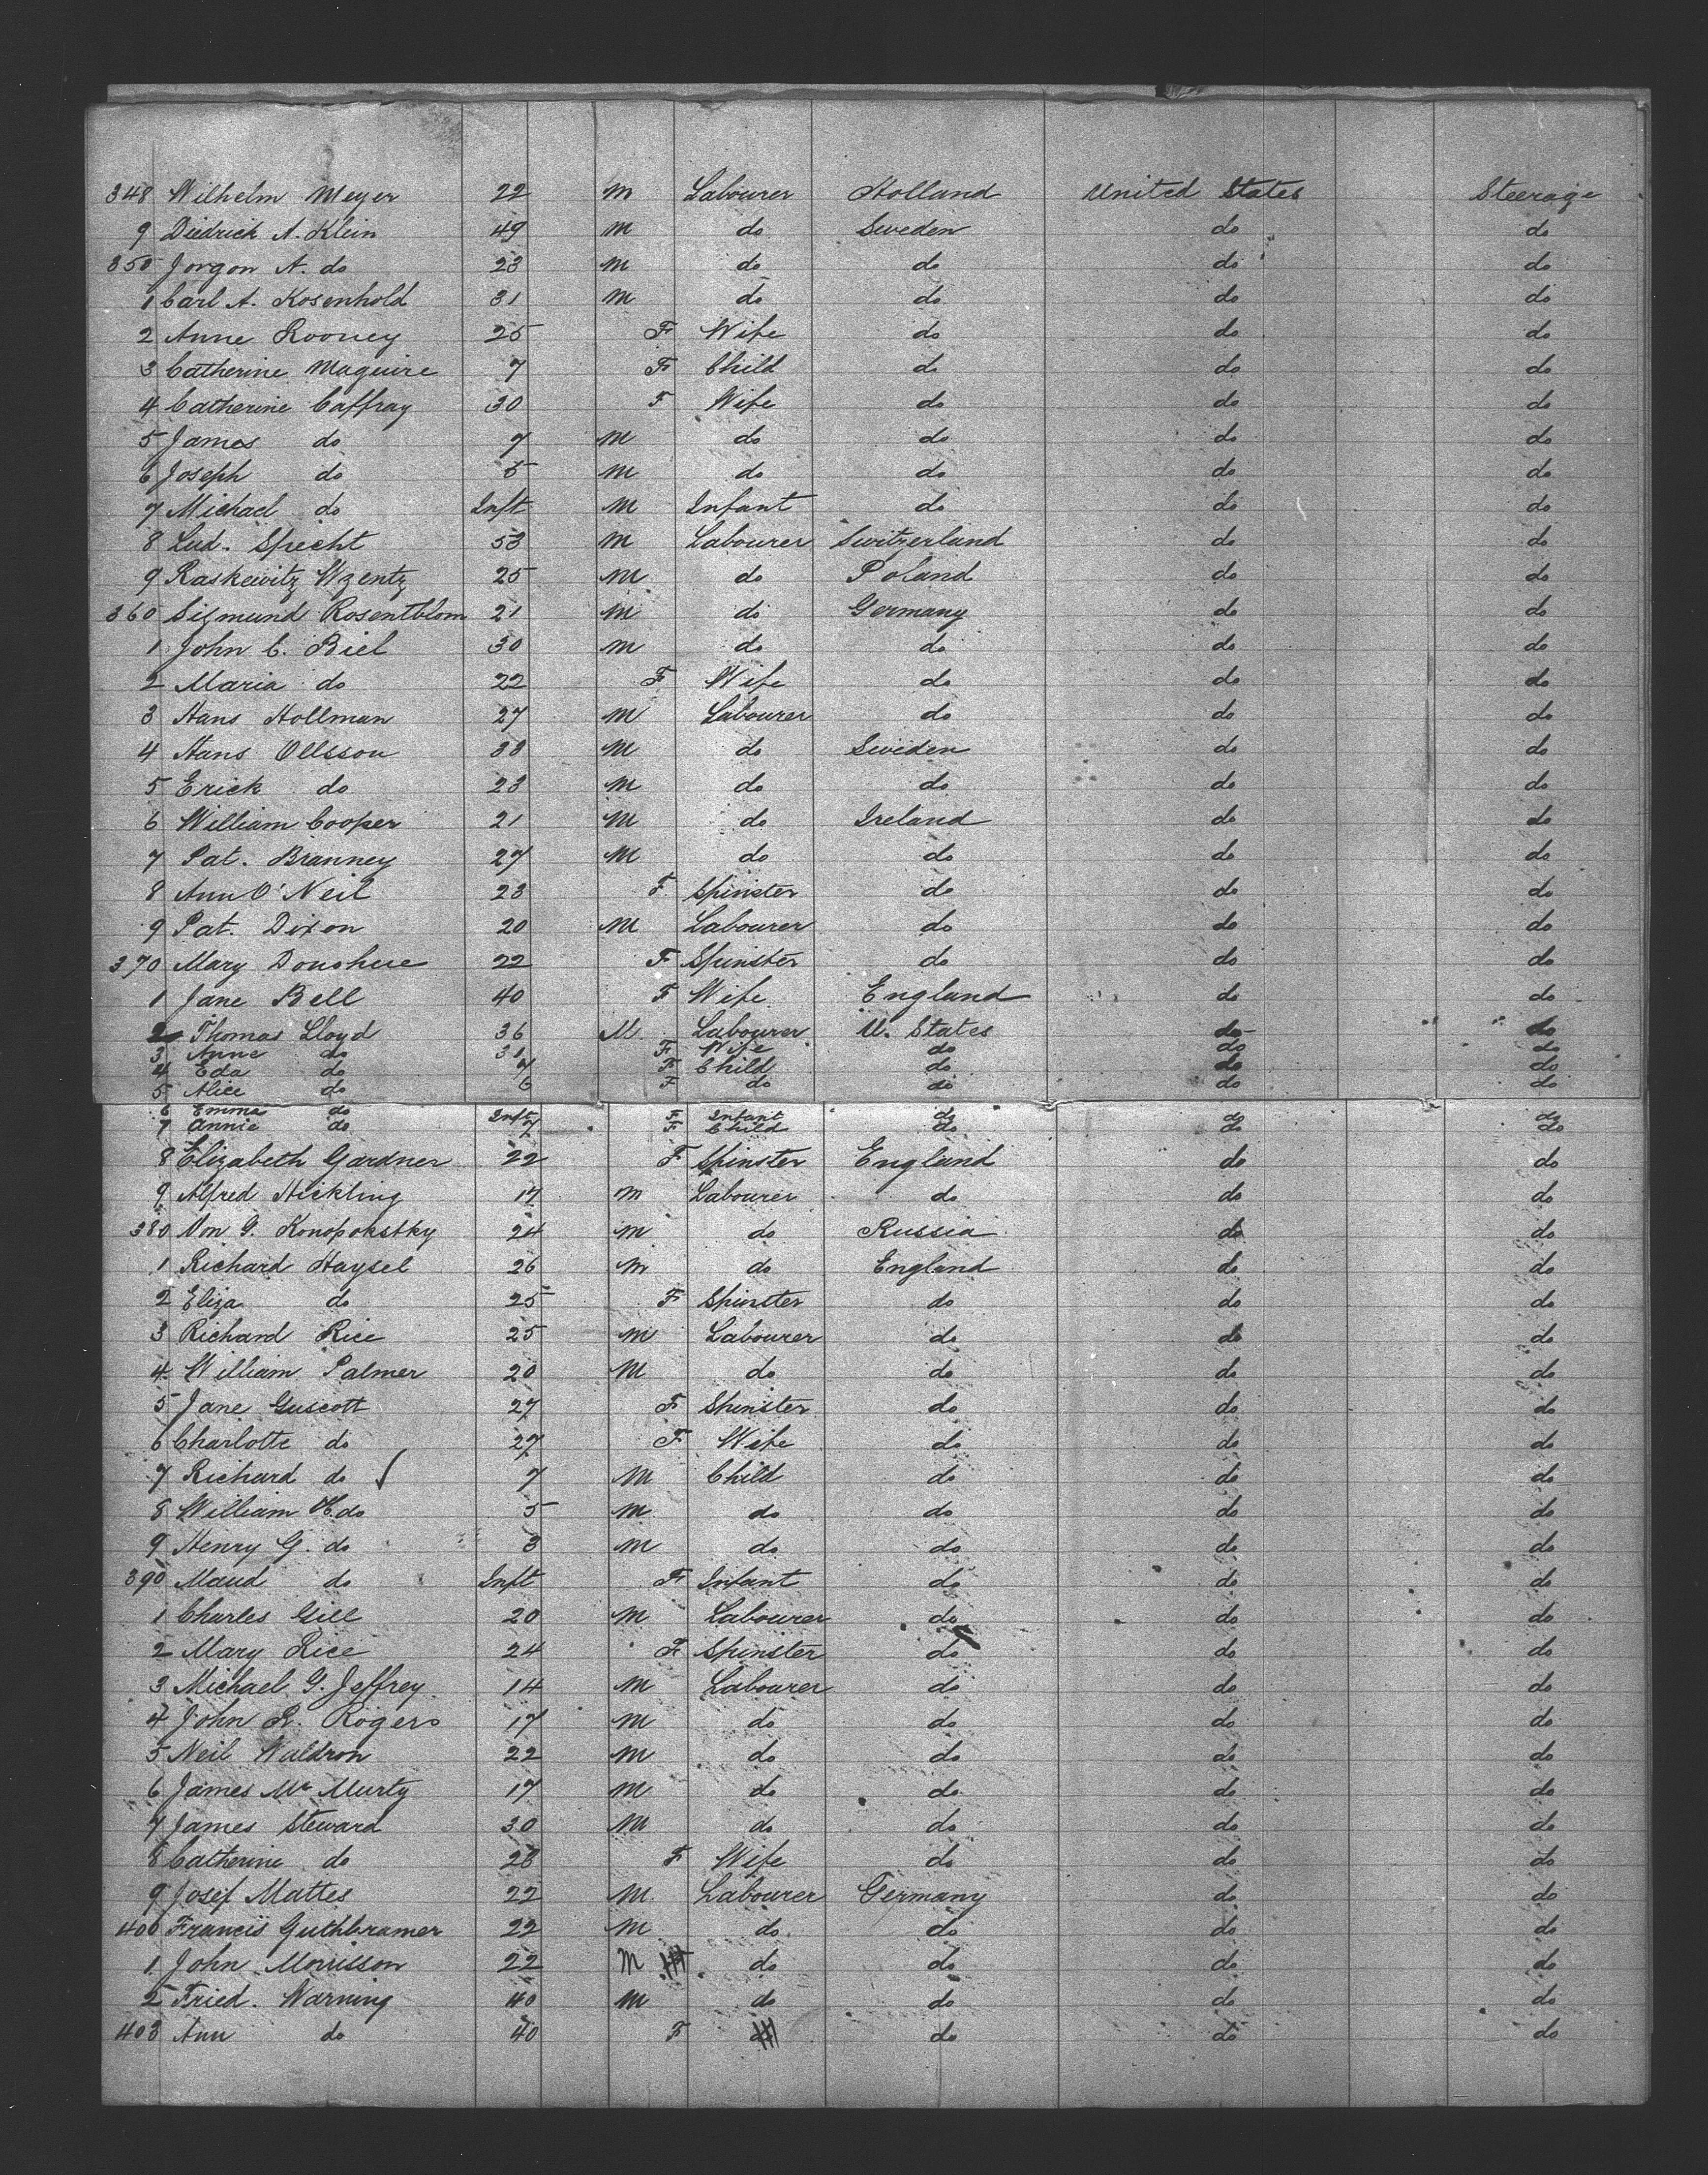 348 Wilhelm Meyer 22 M Labourer Holland United States Steerage
9 Diedrich A. Klein 49 M do Sweden do do
350 Jorgon A. do 23 M do do do do
1 Carl A. Kosenhold 31 M do do do do
2 Anne Rooney 25 F Wife do do do
3 Catherine Maguire 7 F Child do do do
4 Catherine Caffray 30 F Wife do do do
5 James do 7 M do do do do
6 Joseph do 5 M do do do do
7 Michael do Inft M Infant do do do
8 Lud. Specht 53 M Labourer Switzerland do do
9 Raskewitz Wzentz 25 M do Poland do do
360 Sigmund Rosentblom 21 M do Germany do do
1 John C. Biel 30 M do do do do
2 Maria do 22 F Wife do do do
3 Hans Hollman 27 M Labourer do do do
4 Hans Ollsson 33 M do Sweden do do
5 Erick do 23 M do do do do
6 William Cooper 21 M do Ireland do do
7 Pat. Branney 27 M do do do do
8 Ann O'Neil 23 F Spinster do do do
9 Pat. Dixon 20 M Labourer do do do
370 Mary Donohue 22 F Spinster do do do
1 Jane Bell 40 F Wife England do do
2 Thomas Lloyd 36 M Labourer U. States do do
3 Anne do 31 F Wife do do do
4 Eda do 7 F Child do do do
5 Alice do 6 F do do do do
6 Emma do Inft F Infant do do do
7 Annie do 7 F Child do do do
8 Elizabeth Gardner 22 F Spinster England do do
9 Alfred Hickling 17 M Labourer do do do
380 Von G. Konopokstky 24 M do Russia do do
1 Richard Haysel 26 M do England do do
2 Eliza do 25 F Spinster do do do
3 Richard Rice 25 M Labourer do do do
4 William Palmer 20 M do do do do
5 Jane Guscott 27 F Spinster do do do
6 Charlotte do 27 F Wife do do do
7 Richard do 7 M Child do do do
8 William H. do 5 M do do do do
9 Henry G. do 3 M do do do do
390 Maud do Inft F Infant do do do
1 Charles Gill 20 M Labourer do do do
2 Mary Rice 24 F Spinster do do do
3 Michael G. Jeffrey 14 M Labourer do do do
4 John R. Rogers 17 M do do do do
5 Neil Waldron 22 M do do do do
6 James Mc Murty 17 M do do do do
7 James Steward 30 M do do do do
8 Catherine do 28 F Wife do do do
9 Josef Mattes 22 M Labourer Germany do do
400 Francis Guthbramer 22 M do do do do
1 John Morrisson 22 M do do do do
2 Fried. Warning 40 M do do do do
403 Ann do 40 F do do do